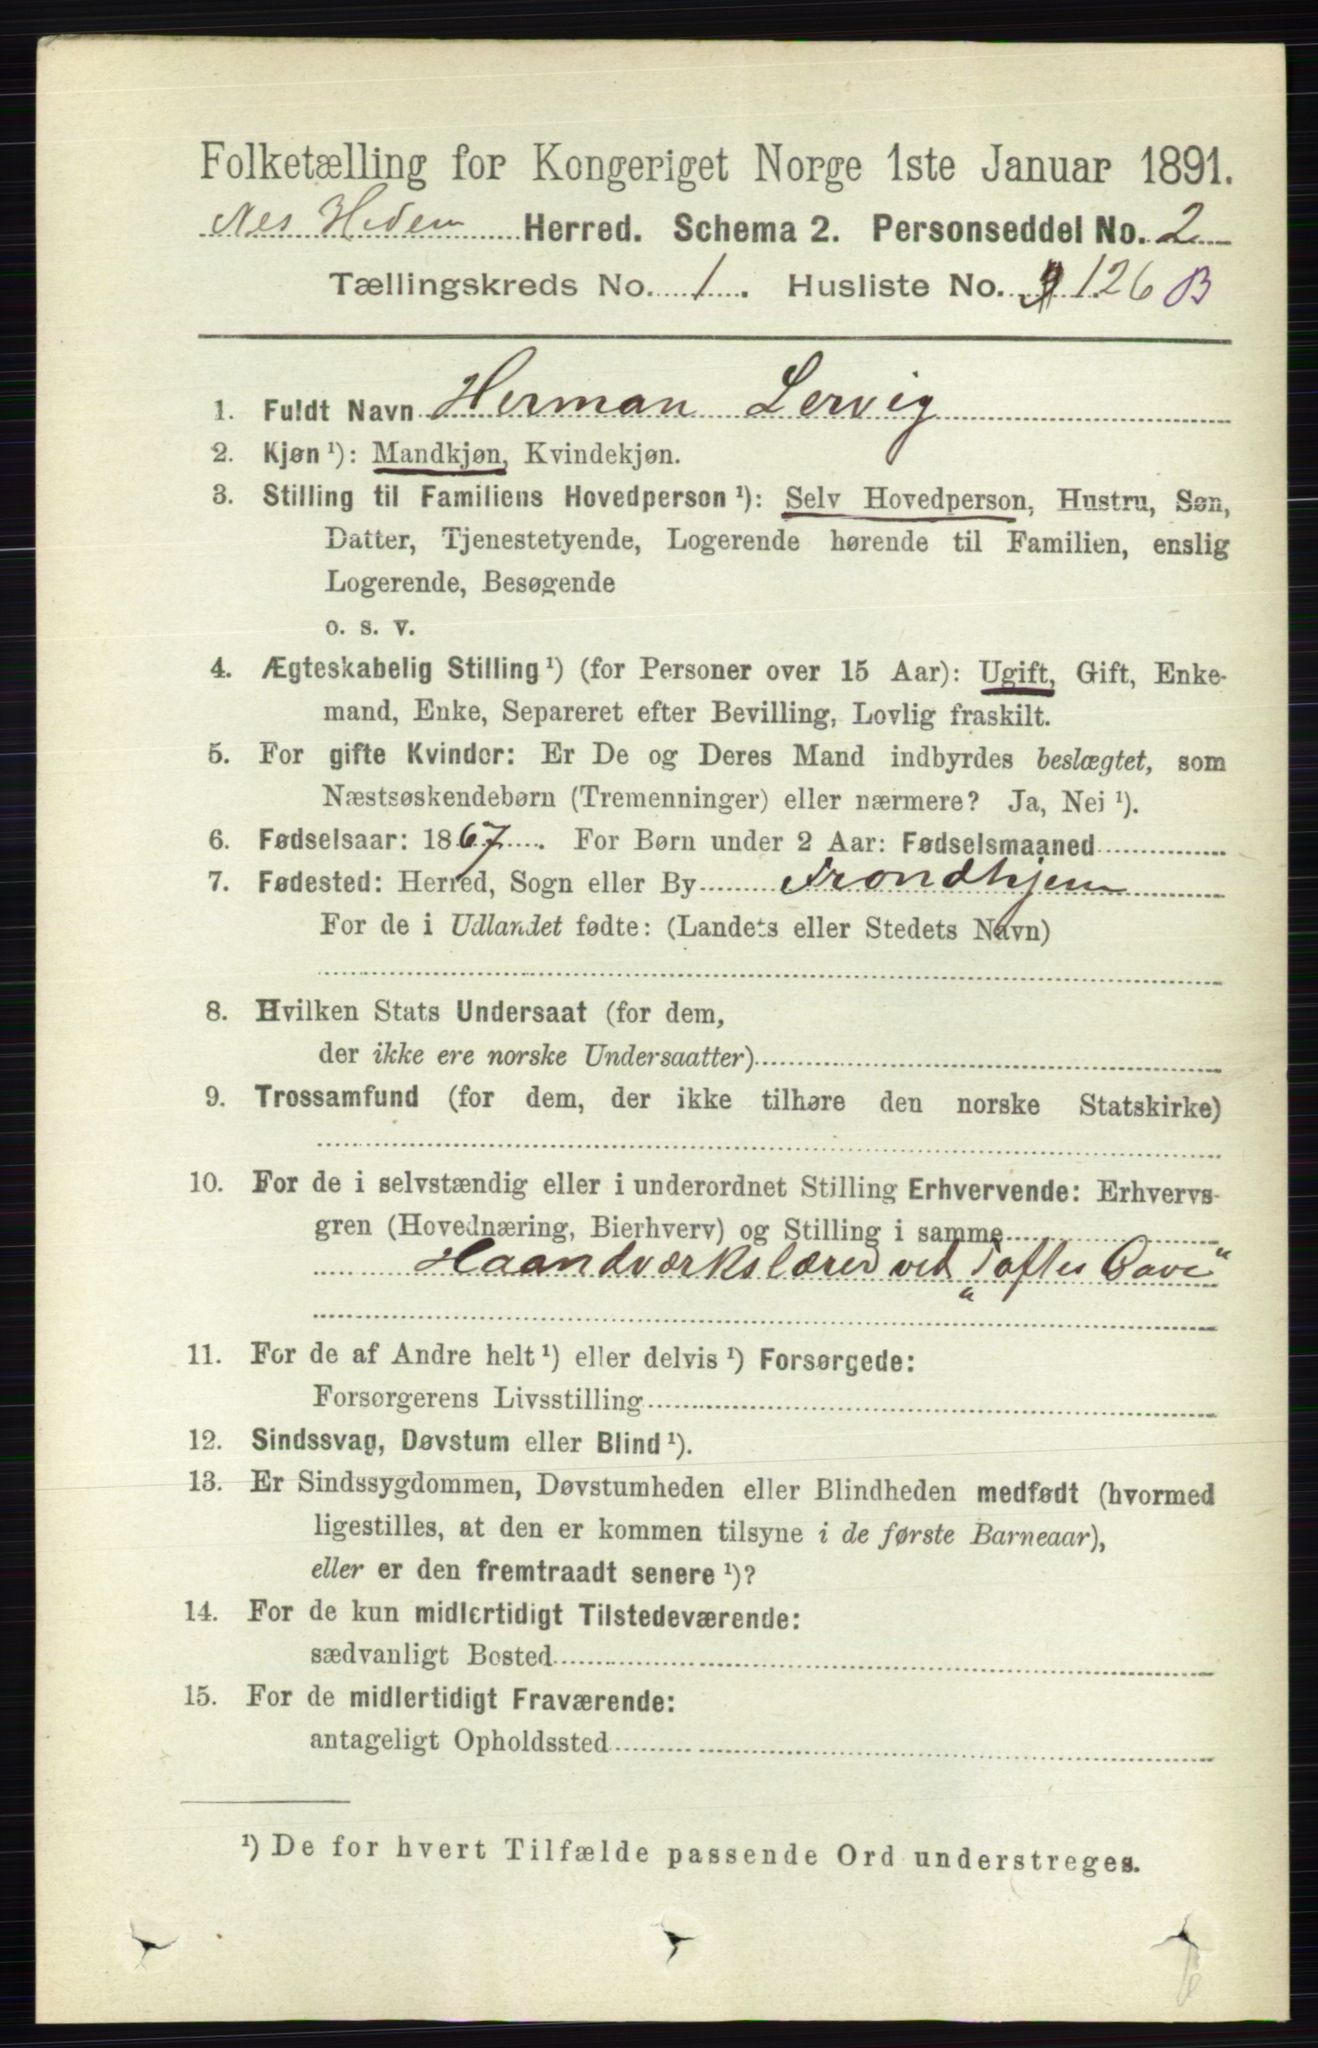 Folketælling for Kongeriget Norge 1ste Januar 1891.
Nes Hedem Herred. Schema 2. Personseddel No. 2
Tællingskreds No. 1. Husliste No. 126 B
1. Fuldt Navn Herman Lervig
2. Kjøn ¹): Mandkjøn, Kvindekjøn.
3. Stilling til Familiens Hovedperson ¹): Selv Hovedperson, Hustru, Søn,
Datter, Tjenestetyende, Logerende hørende til Familien, enslig
Logerende, Besøgende
o. s. v.
4. Ægteskabelig Stilling ¹) (for Personer over 15 Aar): Ugift, Gift, Enke-
mand, Enke, Separeret efter Bevilling, Lovlig fraskilt.
5. For gifte Kvinder: Er De og Deres Mand indbyrdes beslægtet, som
Næstsøskendebørn (Tremenninger) eller nærmere? Ja, Nei ¹).
6. Fødselsaar: 1867. For Børn under 2 Aar: Fødselsmaaned
7. Fødested: Herred, Sogn eller By Trondhjem
For de i Udlandet fødte: (Landets eller Stedets Navn)
8. Hvilken Stats Undersaat (for dem,
der ikke ere norske Undersaatter)
9. Trossamfund (for dem, der ikke tilhøre den norske Statskirke)
10. For de i selvstændig eller i underordnet Stilling Erhvervende: Erhvervs-
gren (Hovednæring, Bierhverv) og Stilling i samme
Haandværkslærer ved „Toftes Gave“
11. For de af Andre helt ¹) eller delvis ¹) Forsørgede:
Forsørgerens Livsstilling
12. Sindssvag, Døvstum eller Blind ¹).
13. Er Sindssygdommen, Døvstumheden eller Blindheden medfødt (hvormed
ligestilles, at den er kommen tilsyne i de første Barneaar),
eller er den fremtraadt senere ¹)?
14. For de kun midlertidigt Tilstedeværende:
sædvanligt Bosted
15. For de midlertidigt Fraværende:
antageligt Opholdssted
¹) De for hvert Tilfælde passende Ord understreges.